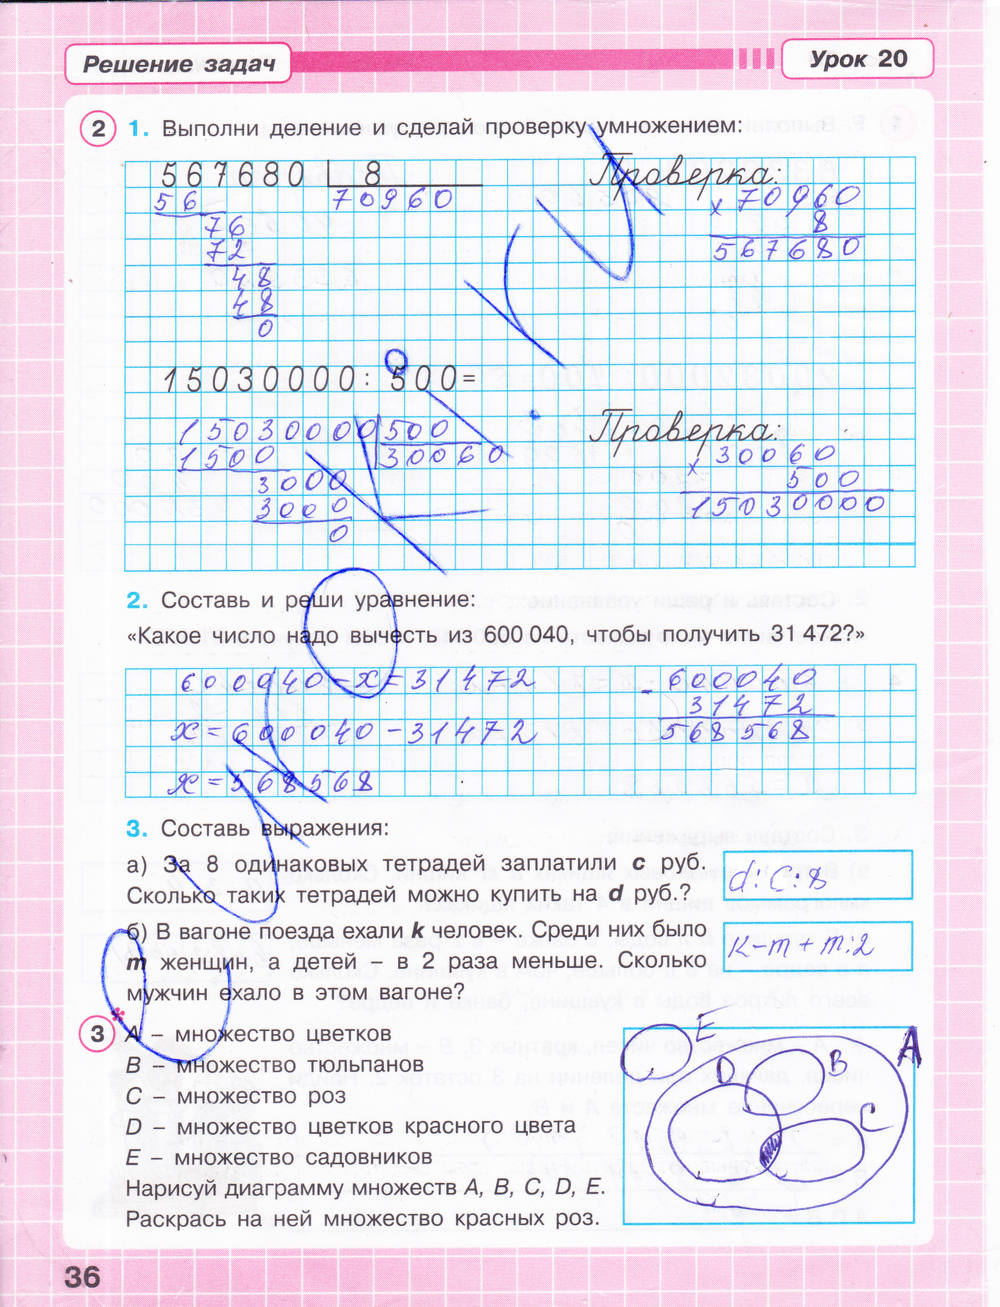 Решение задач
Урок 20
2 1. Выполни деление и сделай проверку умножением:
567680 8 Проверка:
56 70960 × 70960
76 8
72 567680
48
48
0
15030000 : 500 =
15030000 500 Проверка:
1500 30060 × 30060
3000 500
3000 15030000
0
2. Составь и реши уравнение:
«Какое число надо вычесть из 600 040, чтобы получить 31 472?»
600040 – x = 31472 - 600040
31472
x = 600040 – 31472 568568
x = 568568
3. Составь выражения:
а) За 8 одинаковых тетрадей заплатили c руб.
Сколько таких тетрадей можно купить на d руб.?
d : c : 8
б) В вагоне поезда ехали k человек. Среди них было
m женщин, а детей – в 2 раза меньше. Сколько
мужчин ехало в этом вагоне?
k – m + m : 2
3 * A – множество цветков
B – множество тюльпанов
C – множество роз
D – множество цветков красного цвета
E – множество садовников
Нарисуй диаграмму множеств A, B, C, D, E.
Раскрась на ней множество красных роз.
E
A
D
B
C
36